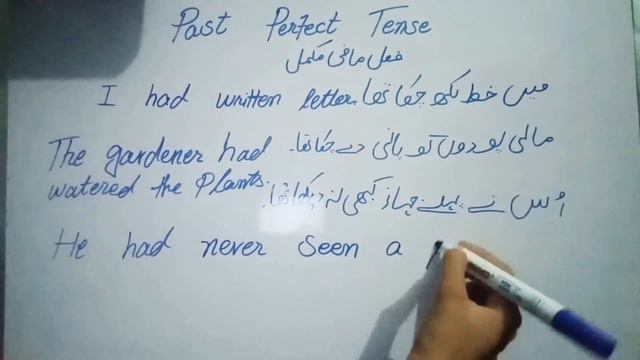 Past Perfect Tense
فعل ماضی مکمل
I had written letter. میں خط لکھ چکا تھا
The gardener had مالی پودوں کو پانی دے چکا تھا۔
watered the Plants. اُس نے پہلے جہاز کبھی نہ دیکھا تھا۔
He had never seen a